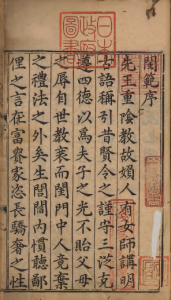 日本
政府
圖書
閨範序
先王重陰教故婦人有女師講明
古語稱引昔賢令之謹守三從克
遵四德以為夫子之光不貽父母
之辱自世教衰而閨門中人竟棄
之禮法之外矣生閭閻內慣聽鄙
俚之言在富貴家恣長驕奢之性